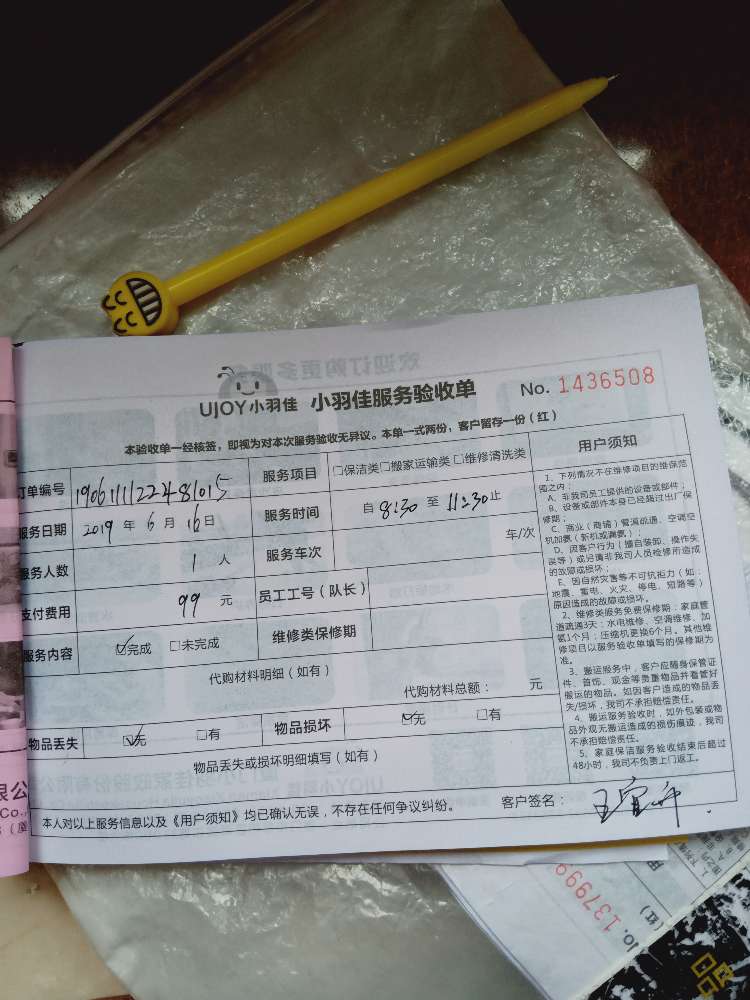 UJOY小羽佳 小羽佳服务验收单 No. 1436508
本验收单一经核签，即视为对本次服务验收无异议。本单一式两份，客户留存一份（红）
订单编号 190611122481015
服务项目 □保洁类□搬家运输类□维修清洗类
服务日期 2019 年 6 月 16 日
服务时间 自 8:30 至 11:30 止
服务人数 1 人
服务车次 车/次
支付费用 99 元
员工工号（队长）
服务内容 ☑完成 □未完成
维修类保修期
代购材料明细（如有）
代购材料总额： 元
物品丢失 ☑无 □有
物品损坏 ☑无 □有
物品丢失或损坏明细填写（如有）
本人对以上服务信息以及《用户须知》均已确认无误，不存在任何争议纠纷。 客户签名：
用户须知
1、下列情况不在维修项目的维保范
围之内：
A、非我司员工提供的设备或部件；
B、设备或部件本身已经超过出厂保
修期；
C、商业（商铺）管道疏通、空调空
机加氨（新机或漏氨）；
D、因客户行为（擅自装卸、操作失
误等）或另请非我司人员检修所造成
的故障或损坏；
E、因自然灾害等不可抗拒力（如：
地震、雷电、火灾、停电、短路等）
原因造成的故障或损坏。
2、维修类服务免费保修期：家庭管
道疏通3天；水电维修、空调维修、加
氨1个月；压缩机更换6个月。其他维
修项目以服务验收单填写的保修期为
准。
3、搬运服务中，客户应随身保管证
件、首饰、现金等贵重物品并看管好
搬运的物品。如因客户造成的物品丢
失/损坏，我司不承担赔偿责任。
4、搬运服务验收时，如外包装或物
品外观无搬运造成的损伤痕迹，我司
不承担赔偿责任。
5、家庭保洁服务验收结束后超过
48小时，我司不负责上门返工。
限公
Co.,
No. 137999
（红）